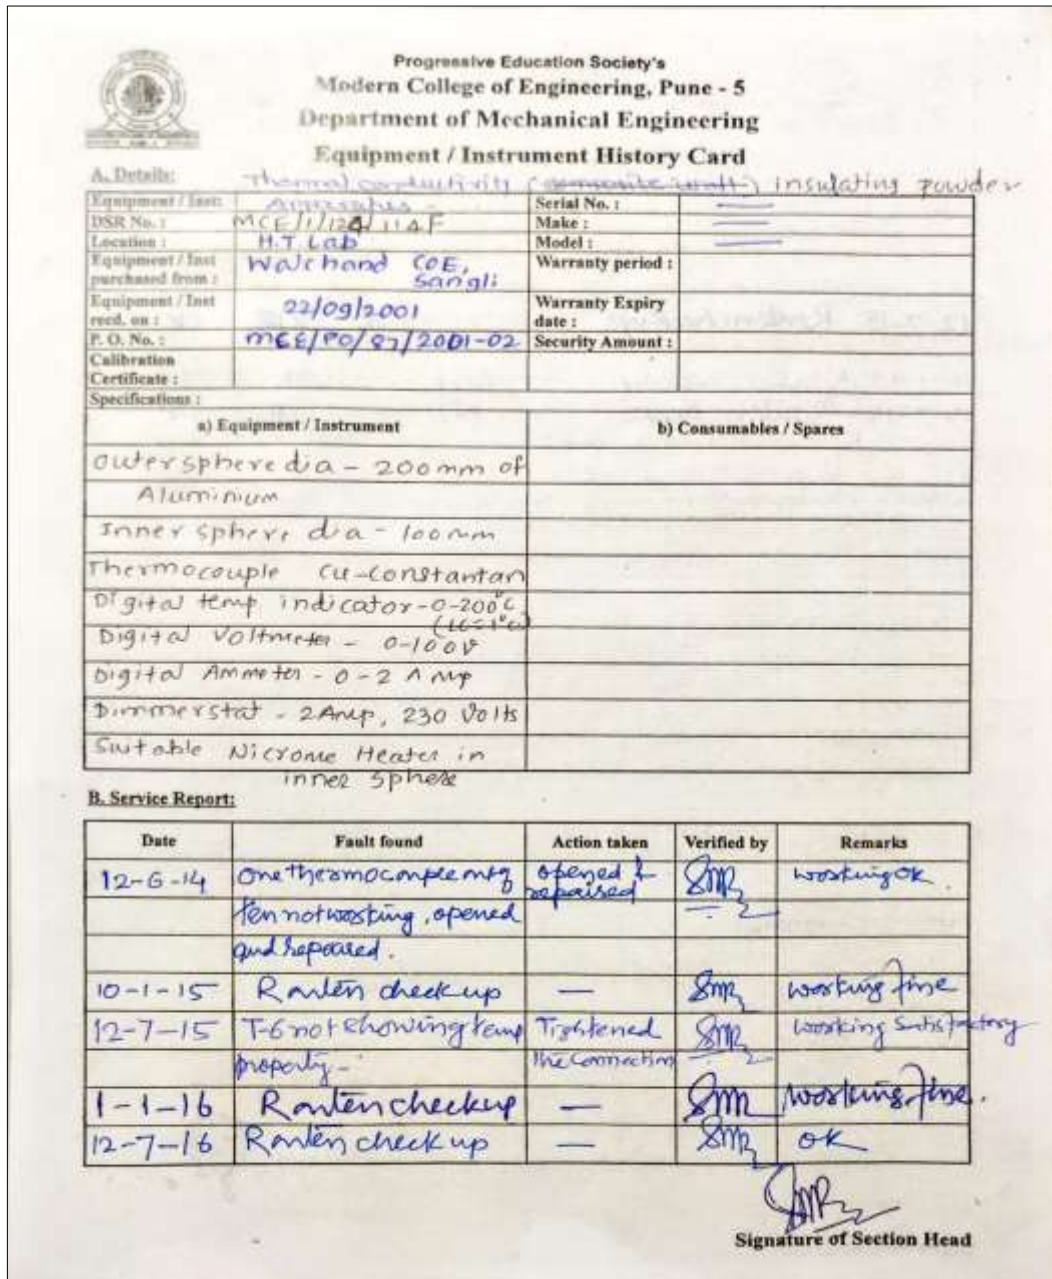 Progressive Education Society's
Modern College of Engineering, Pune - 5
Department of Mechanical Engineering
Equipment / Instrument History Card
A. Details: Thermal conductivity (composite wall) insulating powder
Equipment / Inst: Apparatus - Serial No. : —
DSR No. : MCE/1/124/11AF Make : —
Location : H.T. Lab Model : —
Equipment / Inst purchased from : Walchand COE, Sangli Warranty period :
Equipment / Inst recd. on : 22/09/2001 Warranty Expiry date :
P. O. No. : MCE/PO/87/2001-02 Security Amount :
Calibration Certificate :
Specifications :
a) Equipment / Instrument b) Consumables / Spares
Outer sphere dia - 200mm of
Aluminium
Inner sphere dia - 100mm
Thermocouple cu-constantan
Digital temp indicator - 0-200°C
(LC=1°C)
Digital Voltmeter - 0-100V
Digital Ammeter - 0-2 Amp
Dimmerstat - 2Amp, 230 Volts
Suitable Nicrome Heater in
inner sphere
B. Service Report:
Date Fault found Action taken Verified by Remarks
12-6-14 One thermocouple out of opened & repaired SMR working ok
ten not working, opened
and repaired.
10-1-15 Routen check up — SMR working fine
12-7-15 T-6 not showing temp Tightened SMR working Satisfactory
properly - the connection
1-1-16 Routen checkup — SMR working fine.
12-7-16 Routen check up — SMR ok
SMR
Signature of Section Head